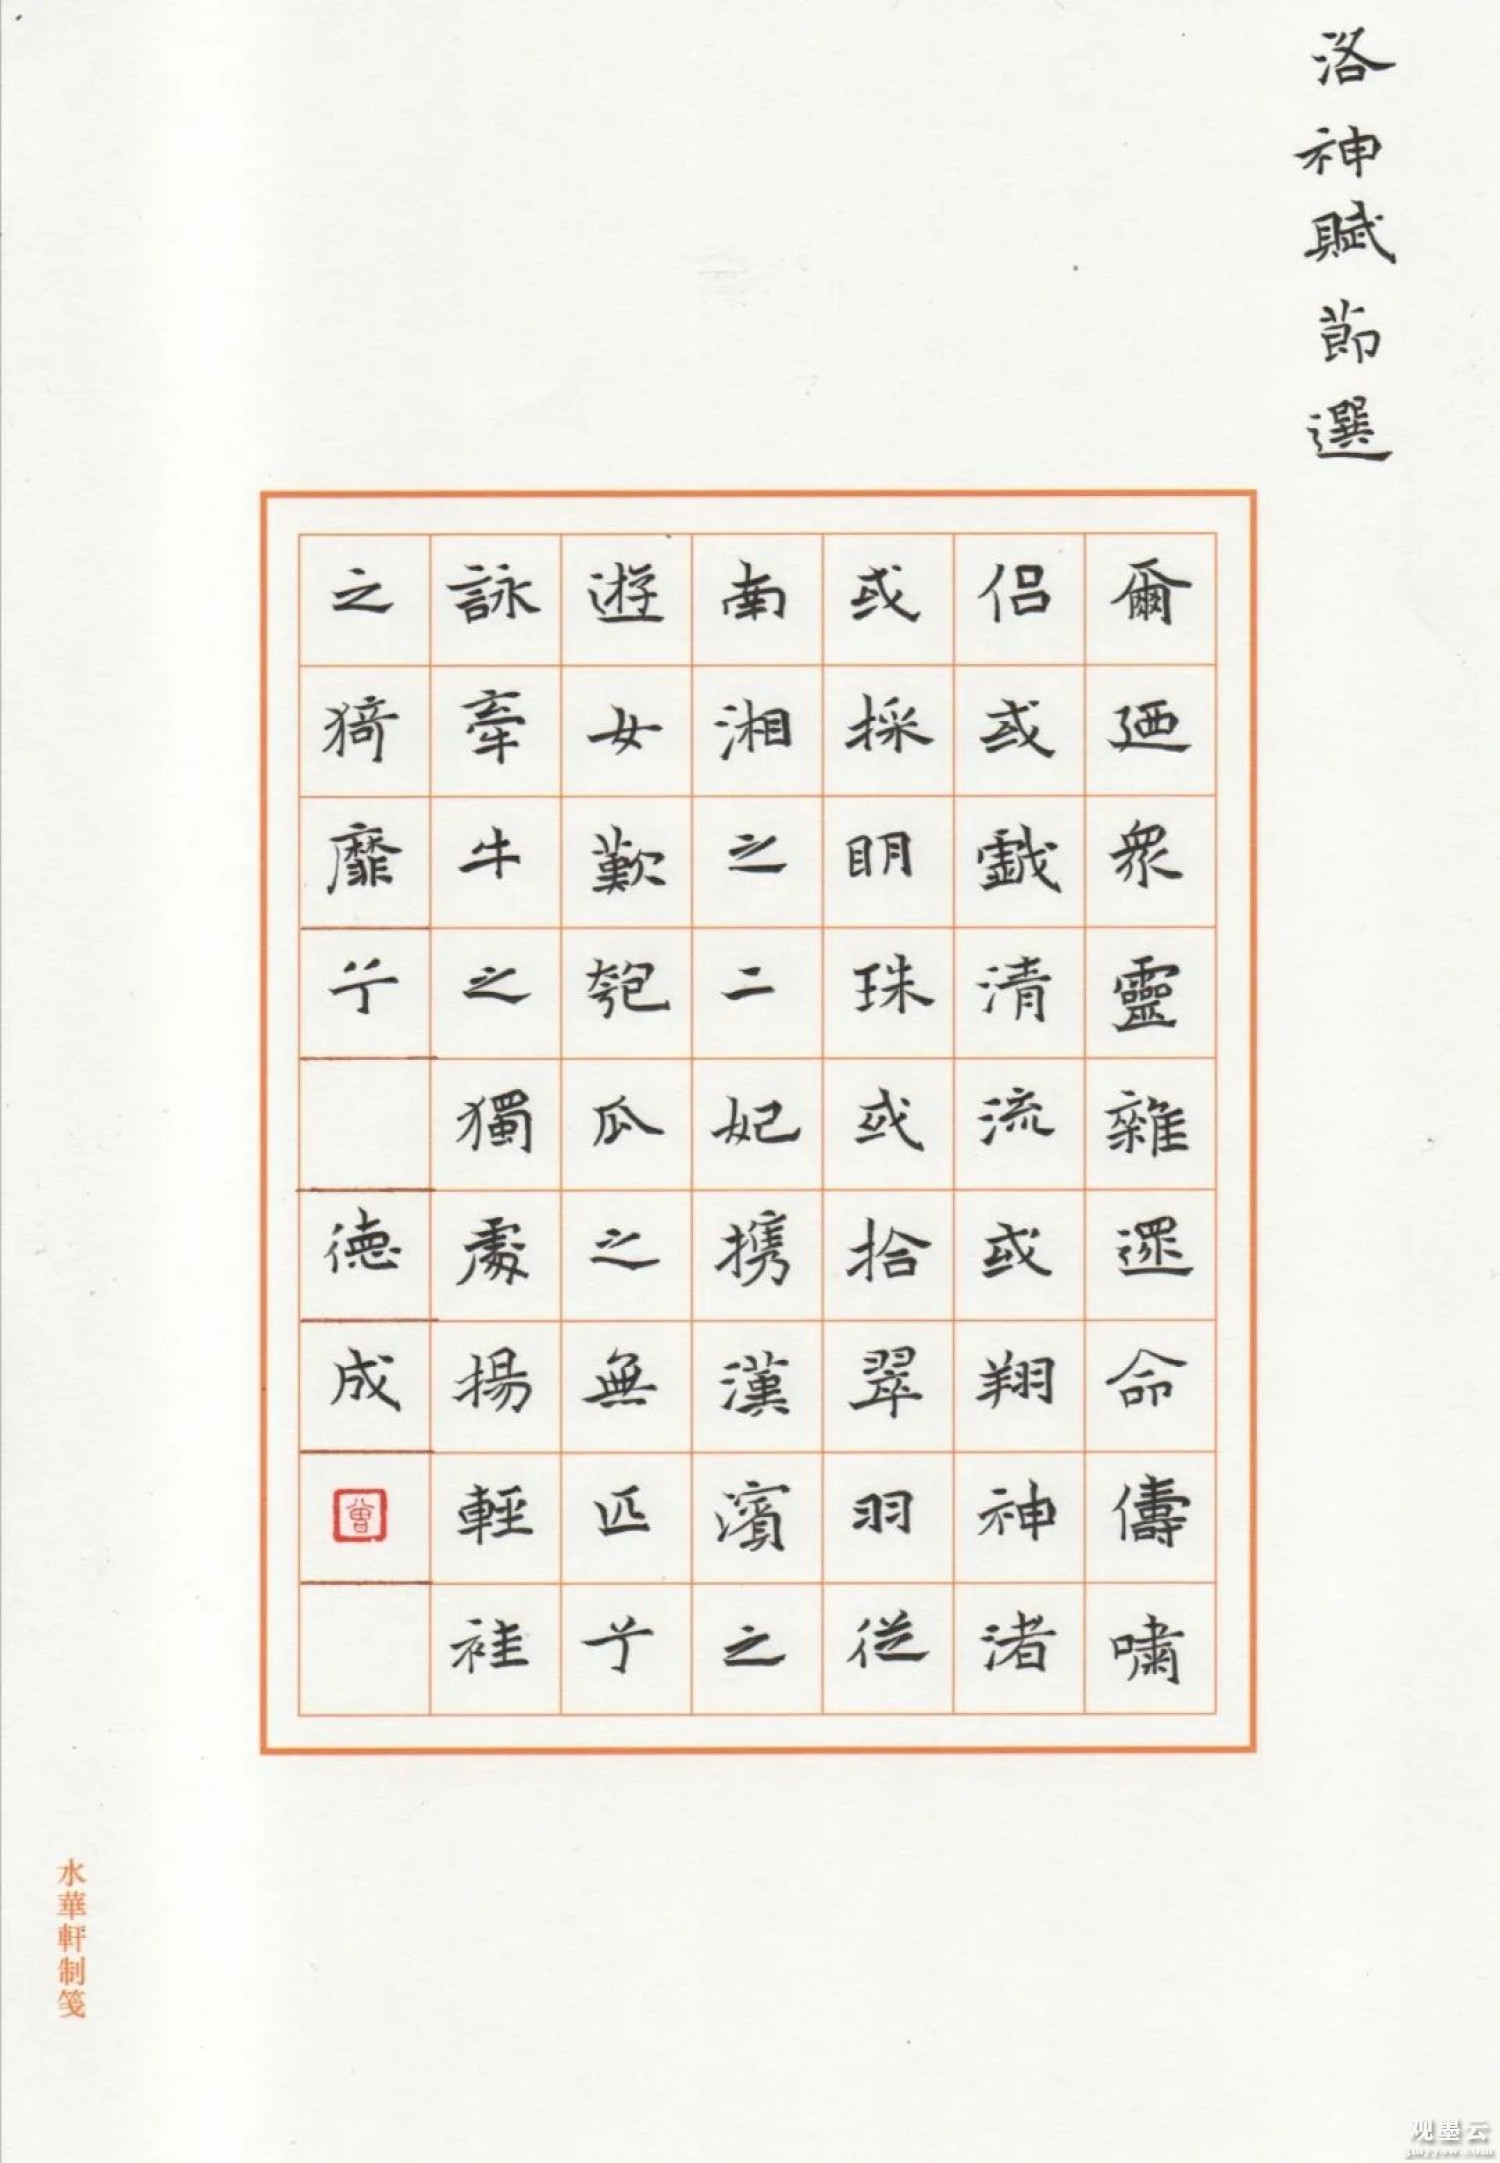 洛神賦節選
爾廼衆靈雜遝命儔嘯
侶或戲清流或翔神渚
或採明珠或拾翠羽從
南湘之二妃攜漢濱之
遊女歎匏瓜之無匹兮
詠牽牛之獨處揚輕袿
之猗靡兮 德成
曾
水華軒制箋
观墨云
gmyyow.com